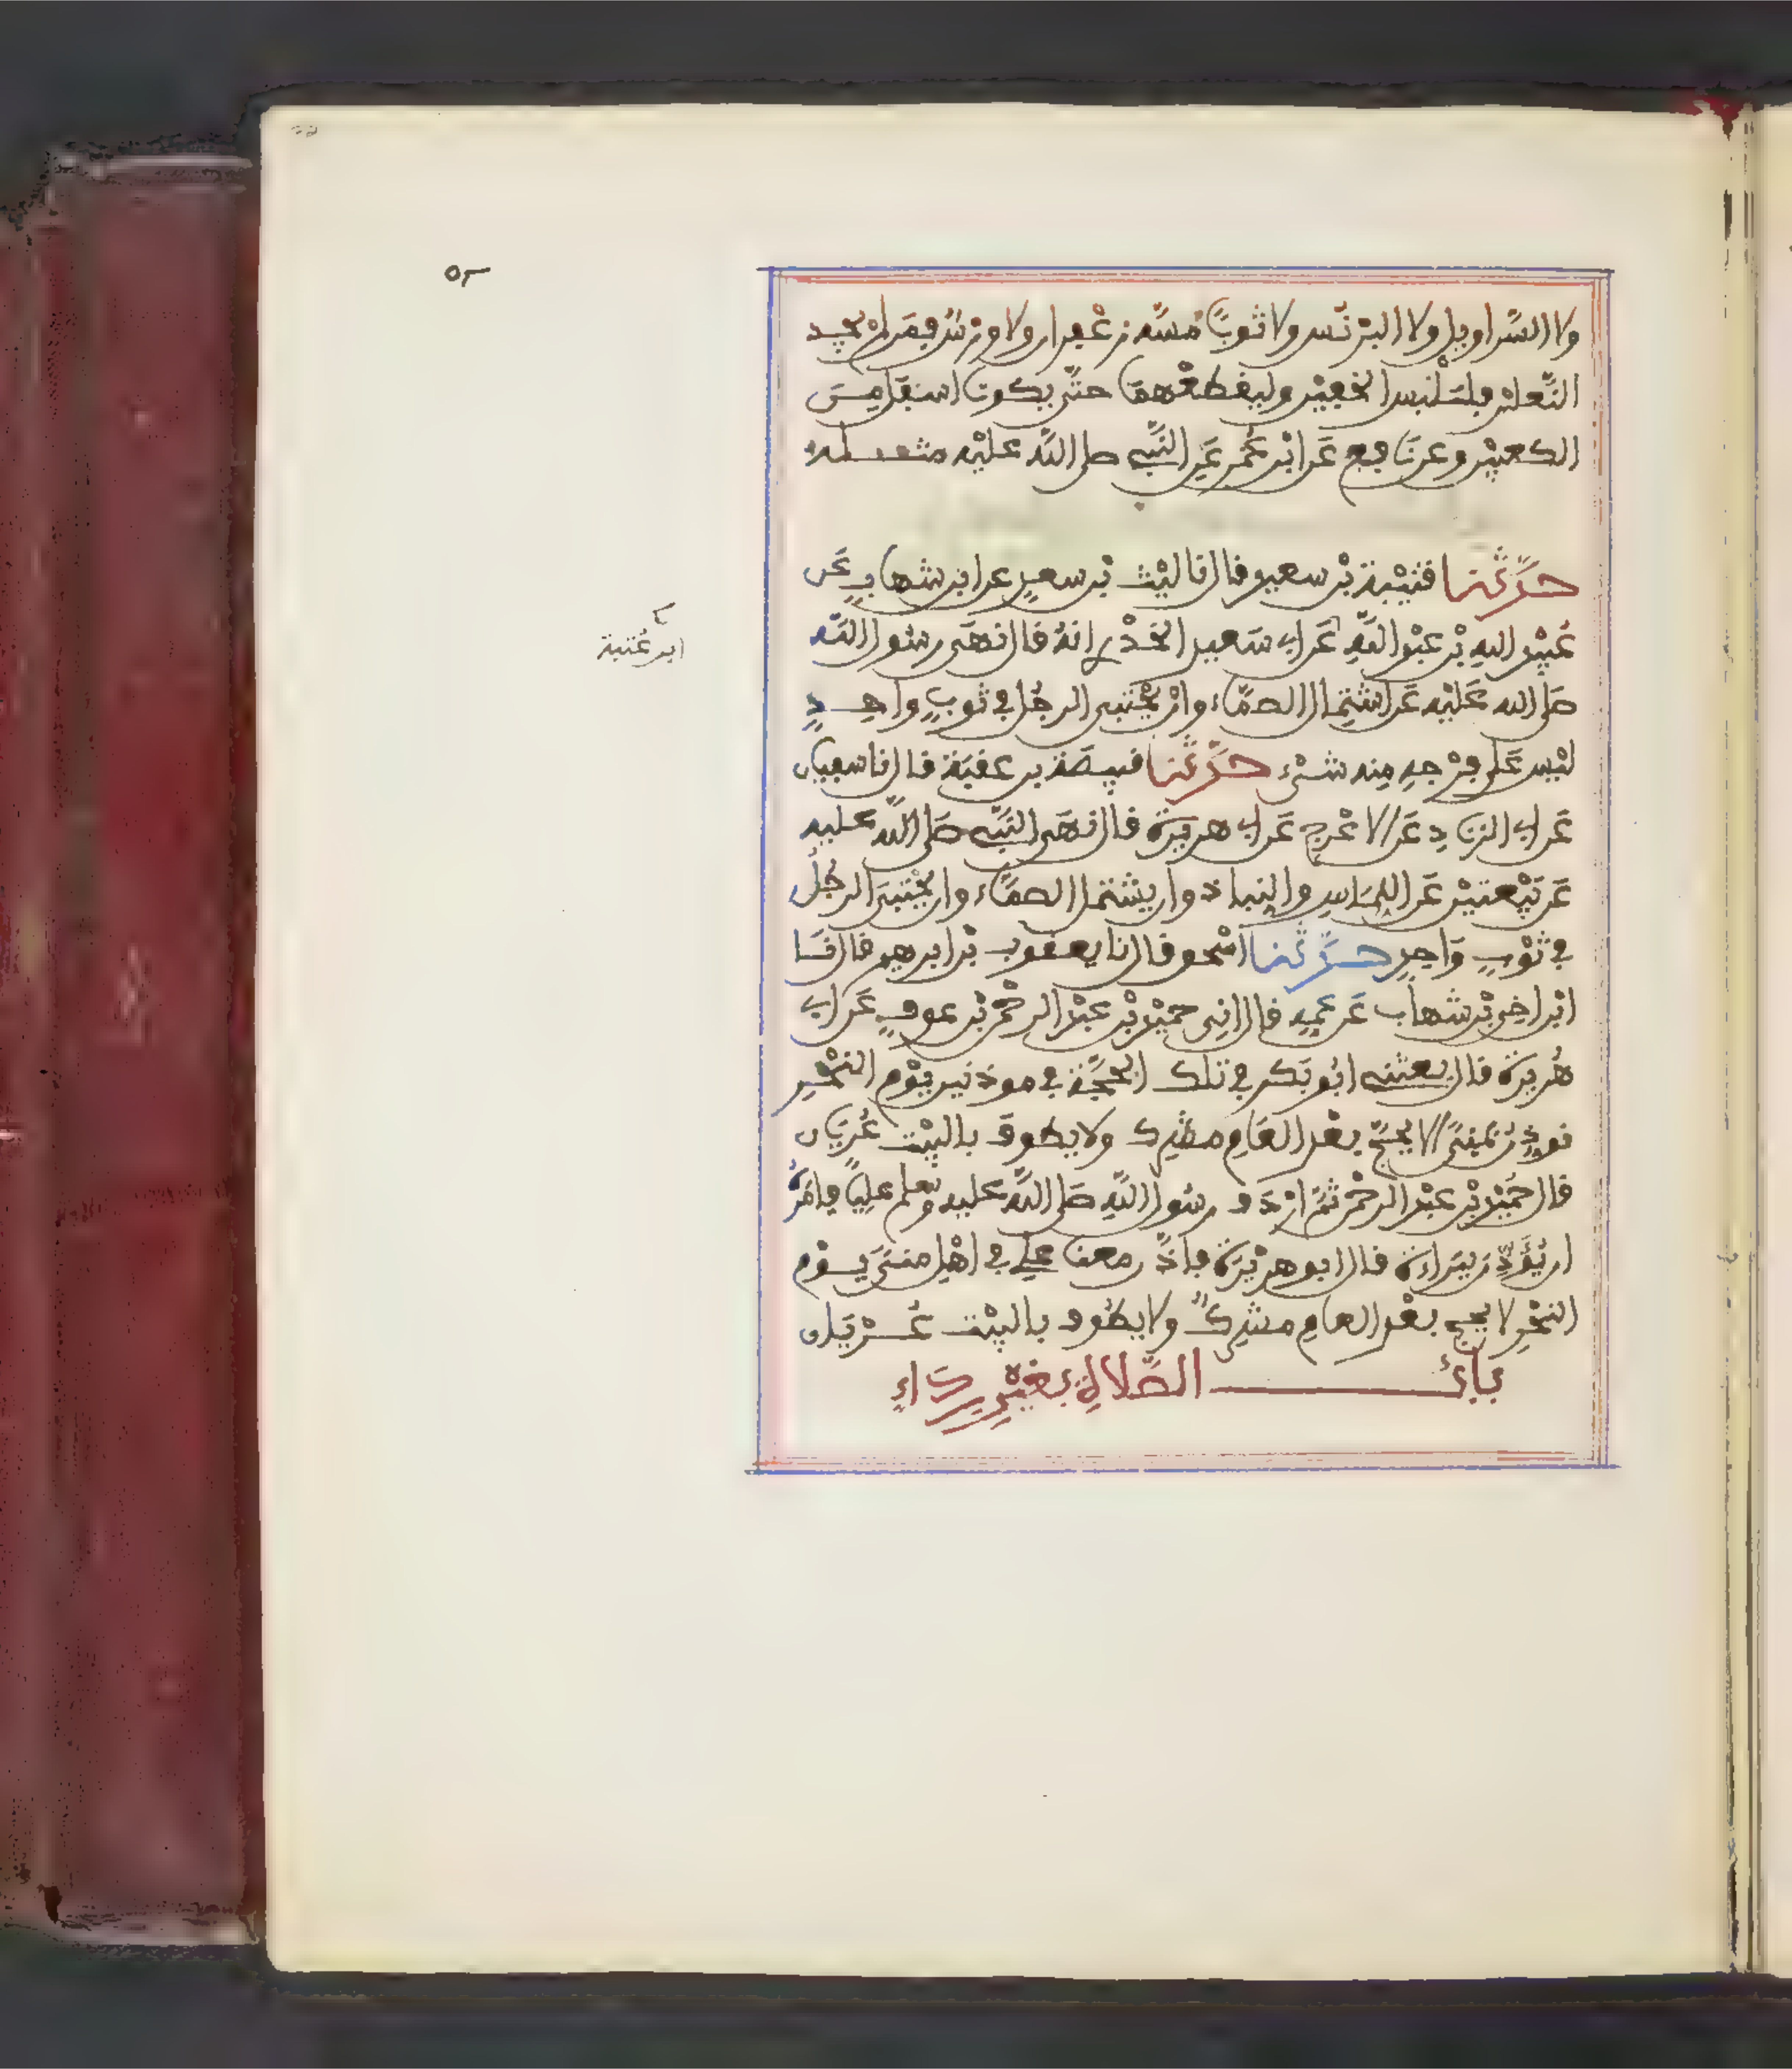 ولا السَّراويل ولا البرنس ولا ثوبًا مسَّه زعفران ولا ورس فمن لم يجد
النَّعلين فليلبس الخفين وليقطعهما حتى يكونا اسفل من
الكعبين وعن نافع عن ابن عمر عن النبي صلى الله عليه مثله
حدَّثنا قتيبة بن سعيد قال نا ليث بن سعد عن ابن شهاب عن
عبيد الله بن عبد الله عن ابي سعيد الخدري انه قال نهى رسول الله
صلى الله عليه عن اشتمال الصمَّاء وان يحتبي الرجل في ثوب واحد
ليس على فرجه منه شيء حدَّثنا قبيصة بن عقبة قال نا سفيان
عن ابي الزناد عن الاعرج عن ابي هريرة قال نهى النبي صلى الله عليه
عن بيعتين عن اللماس والنباذ وان يشتمل الصماء وان يحتبي الرجل
في ثوب واحد حدَّثنا اسحق قال نا يعقوب بن ابرهيم قال نا
ابن اخي بن شهاب عن عمه قال اني حميد بن عبد الرحمن بن عوف عن ابي
هريرة قال بعثني ابو بكر في تلك الحجة في موذنين يوم النحر
نوذن بمنى الا يحج بعد العام مشرك ولا يطوف بالبيت عريان
قال حميد بن عبد الرحمن ثم اردف رسول الله صلى الله عليه وسلم عليًا فامره
ان يؤذن ببراءة قال ابو هريرة فاذن معنا علي في اهل منى يوم
النحر لا يحج بعد العام مشرك ولا يطوف بالبيت عريان
باب الصلاة بغير رداء
ابن عتبة